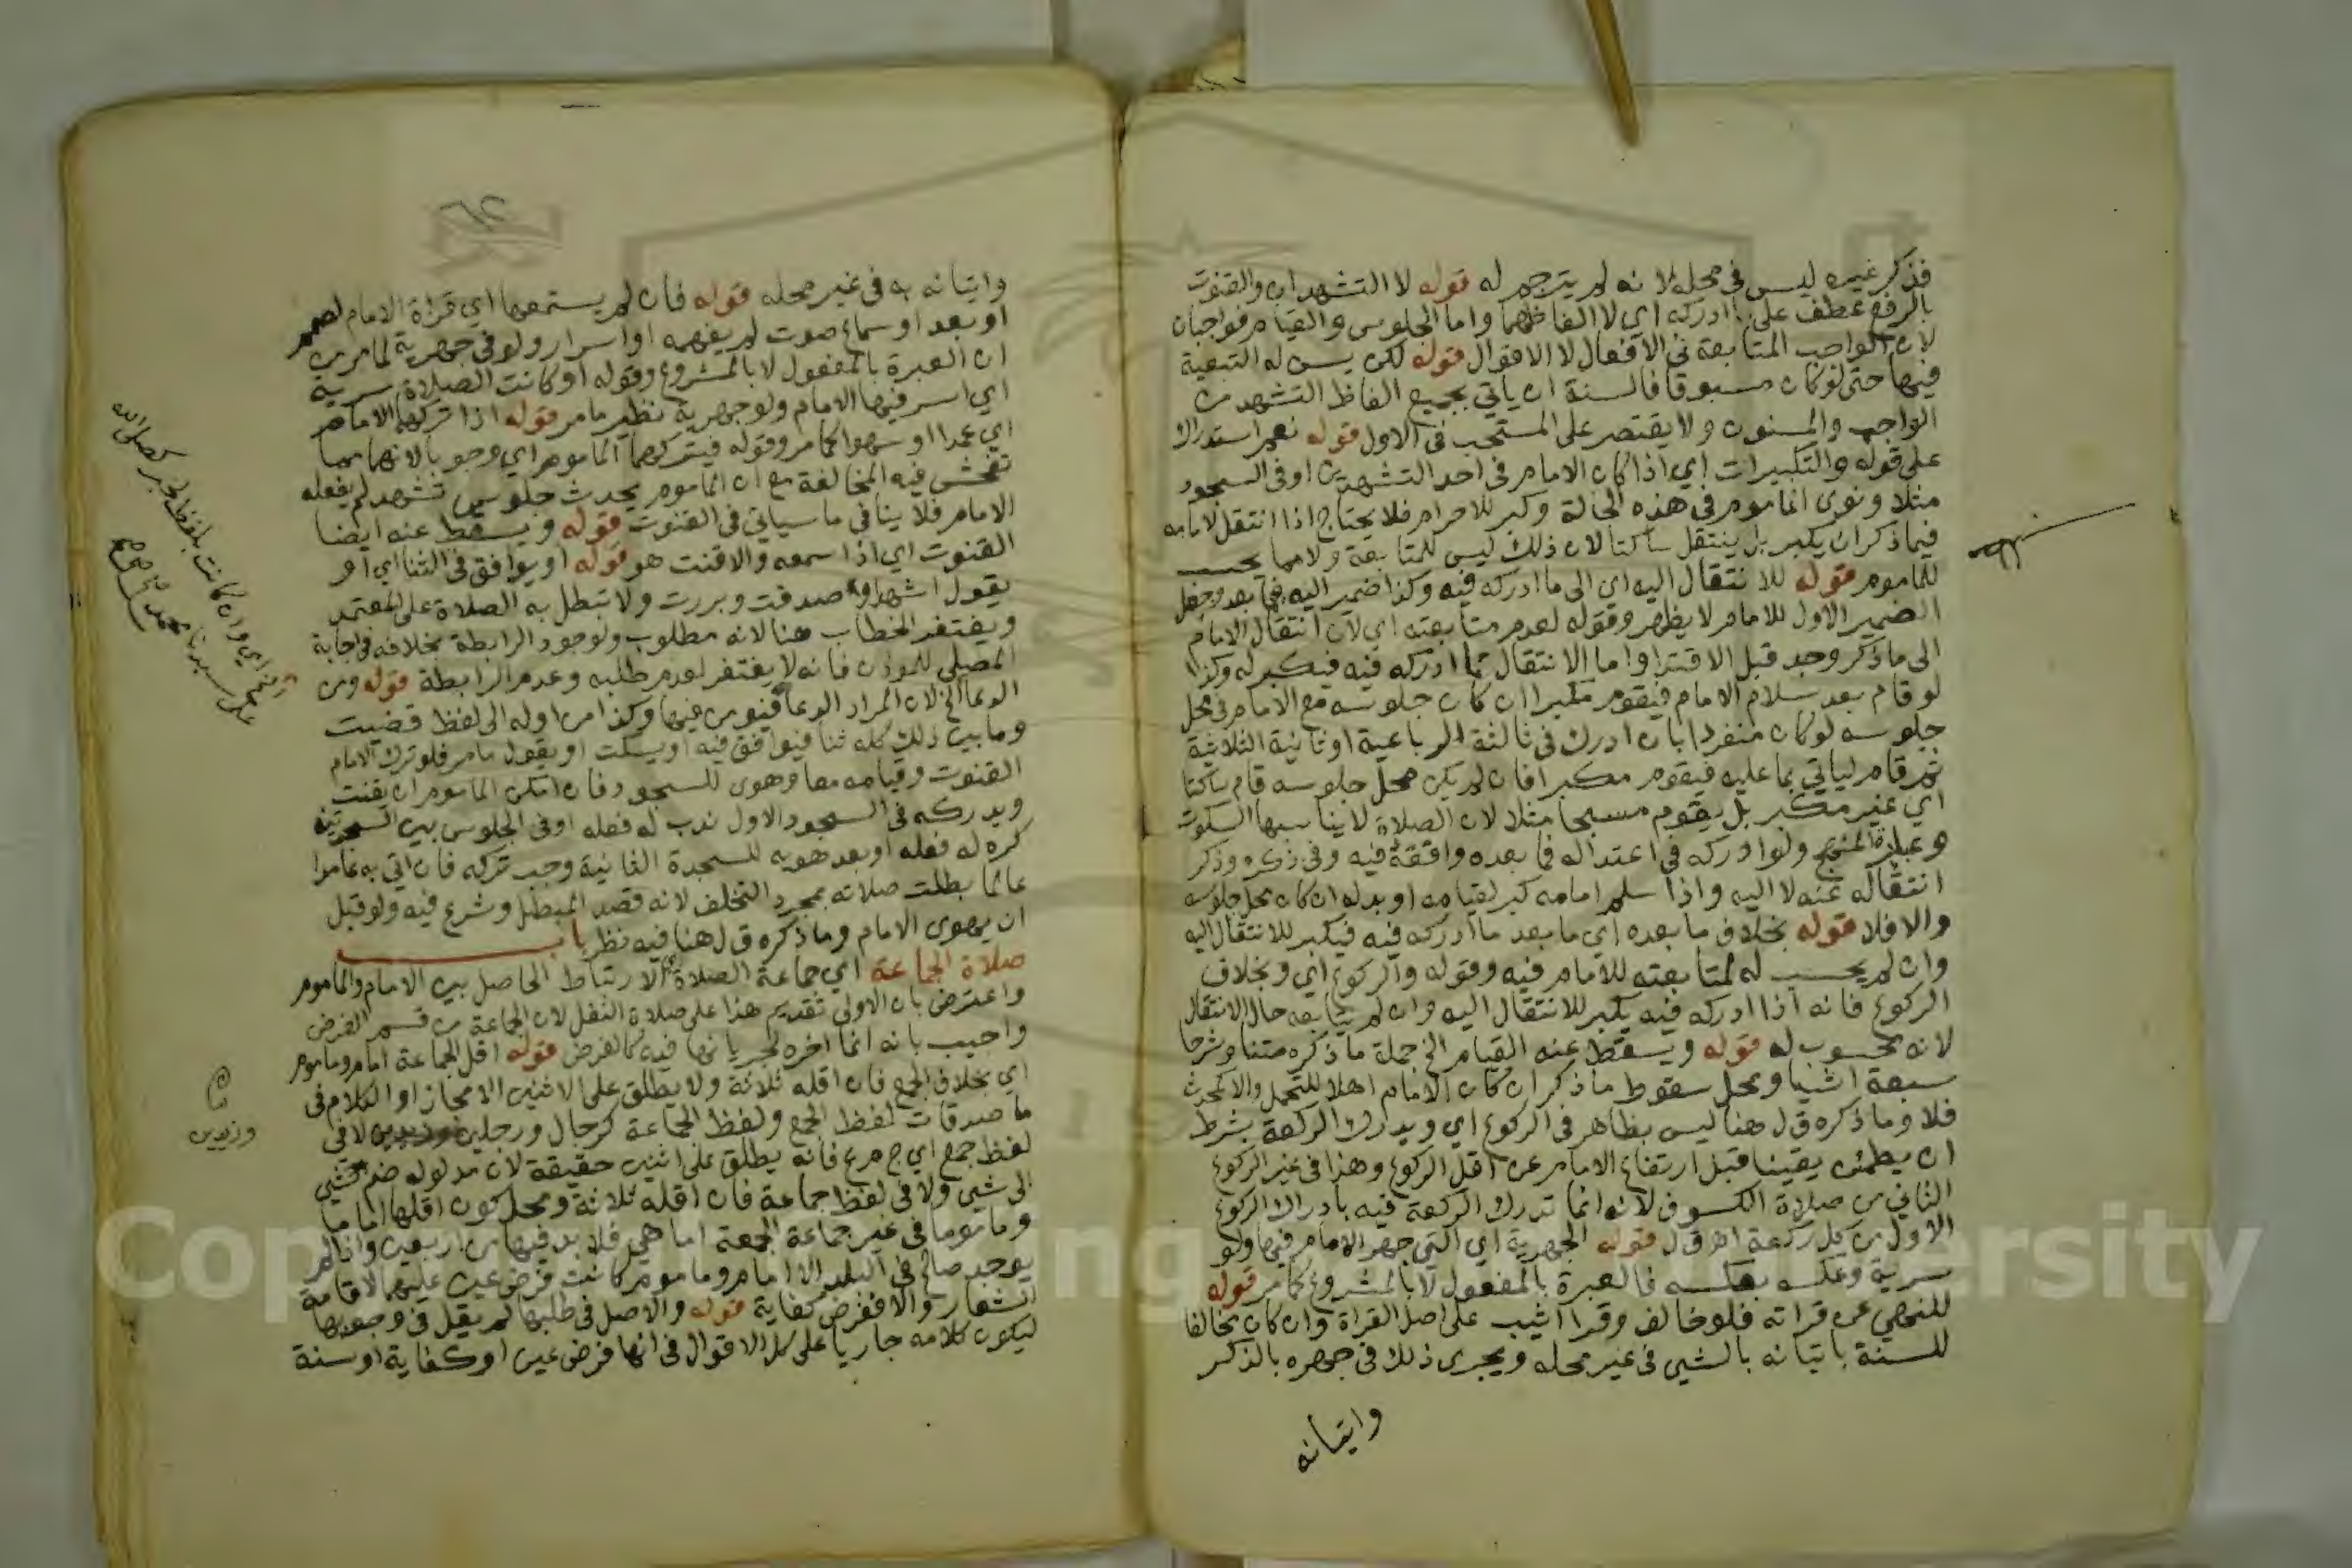 فذكر غيره ليس في محله لانه لم يترجم له قوله لا التشهدان والقنوت
بالرفع عطف على ما ادركه اي لا الفاظهما واما الجلوس والقيام فواجبان
لان الواجب المتابعة في الافعال لا الاقوال قوله لكن يسن له التبعية
فيها حتى لو كان مسبوقا فالسنة ان ياتي بجميع الفاظ التشهد من
الواجب والمسنون ولا يقتصر على المستحب في الاول قوله نعم استدراك
على قوله والتكبيرات اي اذا كان الامام في احد التشهدين او في السجود
مثلا ونوى الماموم في هذه الحالة وكبر للاحرام فلا يحتاج اذا انتقل لامامه
فيما ذكر ان يكبر بل ينتقل ساكتا لان ذلك ليس للمتابعة ولا مما يحسب
للماموم قوله للانتقال اليه اي الى ما ادركه فيه وكذا ضمير اليه فيما بعد وجعل
الضمير الاول للامام لا يظهر وقوله لعدم متابعته اي لان انتقال الامام
الى ما ذكر وجد قبل الاقتدا واما الانتقال مما ادركه فيه فيكبر له وكذا
لو قام بعد سلام الامام فيقوم مكبرا ان كان جلوسه مع الامام في محل
جلوسه لو كان منفردا بان ادرك في ثالثة الرباعية او ثانية الثلاثية
ثم قام لياتي بما عليه فيقوم مكبرا فان لم يكن محل جلوسه قام ساكتا
اي غير مكبر بل يقوم مسبحا مثلا لان الصلاة لا يناسبها السكوت
وعبارة المنهج ولو ادركه في اعتداله فما بعده وافقه فيه وفي ذكره وذكر
انتقاله عنه لا اليه واذا سلم امامه كبر لقيامه او بدله ان كان محل جلوسه
والا فلا قوله بخلاف ما بعده اي ما بعد ما ادركه فيه فيكبر للانتقال اليه
وان لم يحسب له لمتابعته للامام فيه وقوله والركوع اي وبخلاف
الركوع فانه اذا ادركه فيه يكبر للانتقال اليه وان لم يتابعه حال الانتقال
لانه محسوب له قوله ويسقط عنه القيام الخ جملة ما ذكره متنا وشرحا
سبعة اشيا ومحل سقوط ما ذكر ان كان الامام اهلا للتحمل والا كمحدث
فلا وما ذكره ق ل هنا ليس بظاهر في الركوع اي ويدرك الركعة بشرط
ان يطمئن يقينا قبل ارتفاع الامام عن اقل الركوع وهذا في غير الركوع
الثاني من صلاة الكسوف لانه انما تدرك الركعة فيه بادراك الركوع
الاول من كل ركعة اهـ ق ل قوله الجهرية اي التي جهر الامام فيها ولو
سرية وعكسه بعكسه فالعبرة بالمفعول لا بالمشروع كما مر قوله
للنهي عن قراته فلو خالف وقرا اثيب على اصل القراة وان كان مخالفا
للسنة باتيانه بالشي في غير محله ويجري ذلك في جهره بالذكر
واتيانه
واتيانه به في غير محله قوله فان لم يستمعها اي قراة الامام لصمم
او بعد او سماع صوت لم يفهمه او اسرار ولو في جهرية لما مر من
ان العبرة بالمفعول لا بالمشروع وقوله او كانت الصلاة سرية
اي اسر فيها الامام ولو جهرية نظير ما مر قوله اذا تركهما الامام
اي عمدا او سهوا كما مر وقوله فيتركهما الماموم اي وجوبا لانهما مما
تفحش فيه المخالفة مع ان الماموم يحدث جلوس تشهد لم يفعله
الامام فلا ينافي ما سياتي في القنوت قوله ويسقط عنه ايضا
القنوت اي اذا سمعه والا قنت هو قوله او يوافق في الثنا اي او
يقول اشهد او صدقت وبررت ولا تبطل به الصلاة على المعتمد
ويغتفر الخطاب هنا لانه مطلوب ولوجود الرابطة بخلافه في اجابة
المصلي للموذن فانه لا يغتفر لعدم طلبه وعدم الرابطة قوله ومن
الدعا الخ لان المراد الدعا فيؤمن فيها وكذا من اوله الى لفظ قضيت
وما بين ذلك كله ثنا فيوافق فيه او يسكت او يقول ما مر فلو ترك الامام
القنوت وقيامه معا وهوى للسجود فان امكن الماموم ان يقنت
ويدركه في السجود الاول ندب له فعله او في الجلوس بين السجدتين
كره له فعله او بعد هويه للسجدة الثانية وجب تركه فان اتى به عامدا
عالما بطلت صلاته بمجرد التخلف لانه قصد المبطل وشرع فيه ولو قبل
ان يهوى الامام وما ذكره ق ل هنا فيه نظر باب
صلاة الجماعة اي جماعة الصلاة اي الارتباط الحاصل بين الامام والماموم
واعترض بان الاولى تقديم هذا على صلاة النفل لان الجماعة من قسم الفرض
واجيب بانه انما اخره لجريانها فيه كالفرض قوله اقل الجماعة امام وماموم
اي بخلاف الجمع فان اقله ثلاثة ولا يطلق على الاثنين الا مجازا والكلام في
ما صدقات لفظ الجمع ولفظ الجماعة كرجال ورجلين لا في
لفظ جمع اي ج م ع فانه يطلق على اثنين حقيقة لان مدلوله ضم شي
الى شي ولا في لفظ جماعة فان اقله ثلاثة ومحل كون اقلها اماما
وماموما في غير جماعة الجمعة اما هي فلا بد فيها من اربعين واذا لم
يوجد صالح في البلد الا امام وماموم كانت فرض عين عليهما لاقامة
الشعار والا ففرض كفاية قوله والاصل في طلبها لم يقل في وجوبها
ليكون كلامه جاريا على كل الاقوال في انها فرض عين او كفاية او سنة
اي وان كانت بلفظ الخبر كصلى الله
على سيدنا محمد
وزيدين